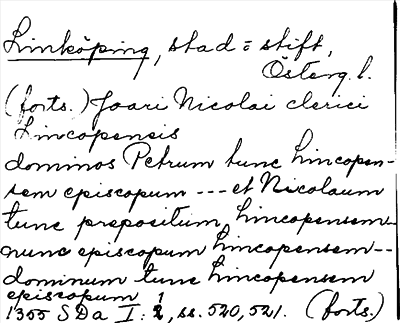 Linköping, stad = stift,
Österg l.
(forts.) Joari Nicolai clerici
Lincopensis
dominos Petrum tunc Lincopen-
sem episcopum --- et Nicolaum
tunc prepositum, Lincopensem-
nunc episcopum Lincopensem--
dominum tunc Lincopensem
episcopum
1355 SDa I: 2, ss. 520, 521. (forts.)